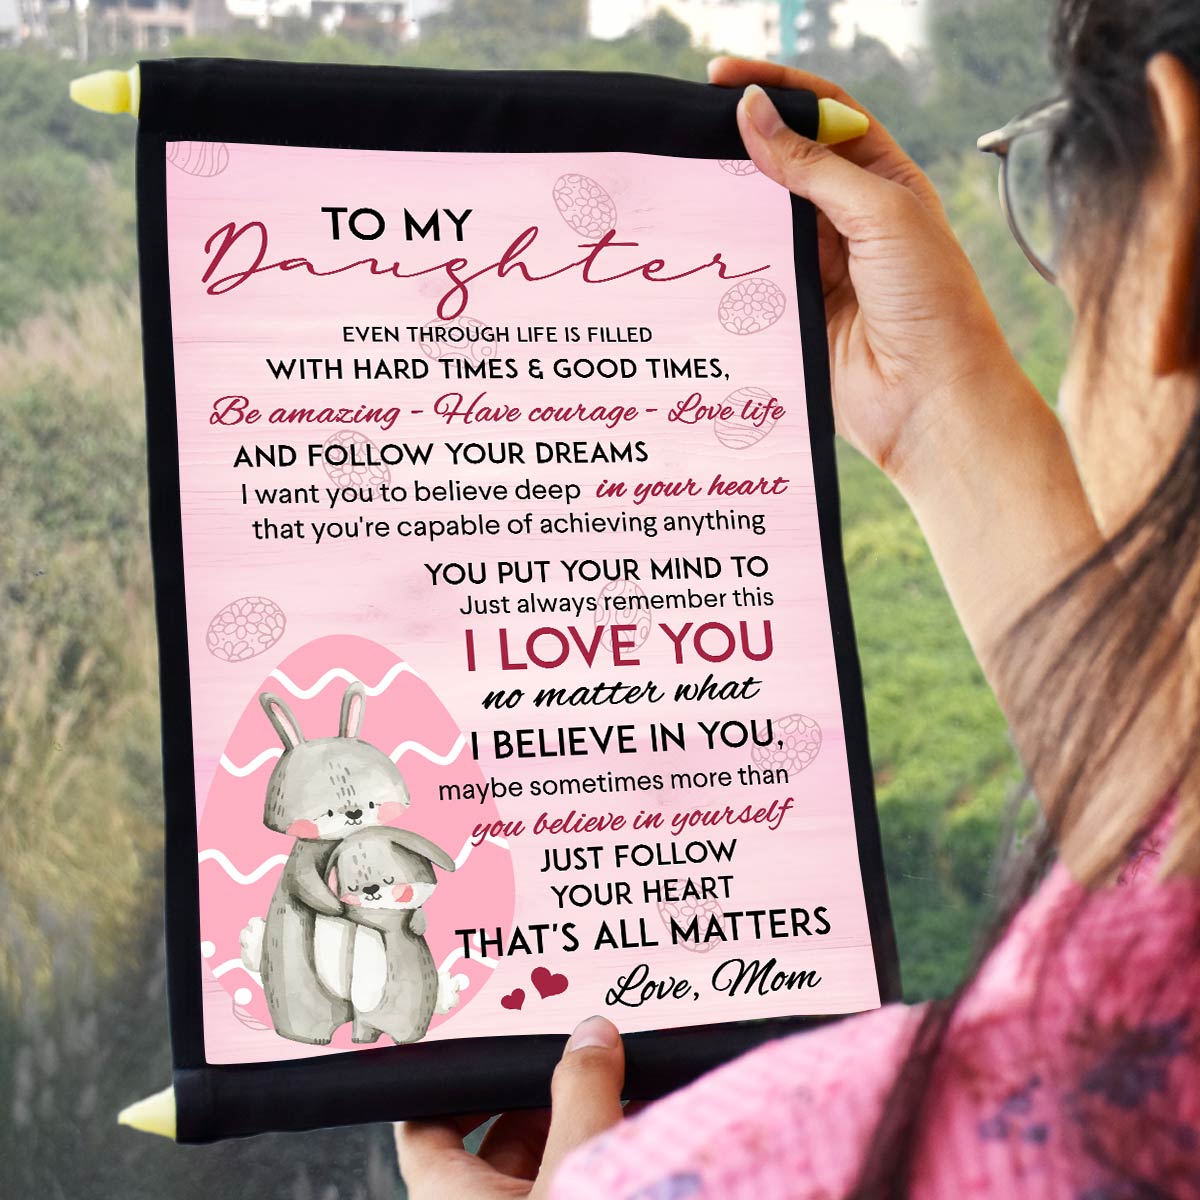 TO MY
Daughter
EVEN THROUGH LIFE IS FILLED
WITH HARD TIMES & GOOD TIMES,
Be amazing - Have courage - Love life
AND FOLLOW YOUR DREAMS
I want you to believe deep in your heart
that you're capable of achieving anything
YOU PUT YOUR MIND TO
Just always remember this
I LOVE YOU
no matter what
I BELIEVE IN YOU,
maybe sometimes more than
you believe in yourself
JUST FOLLOW
YOUR HEART
THAT'S ALL MATTERS
Love, Mom